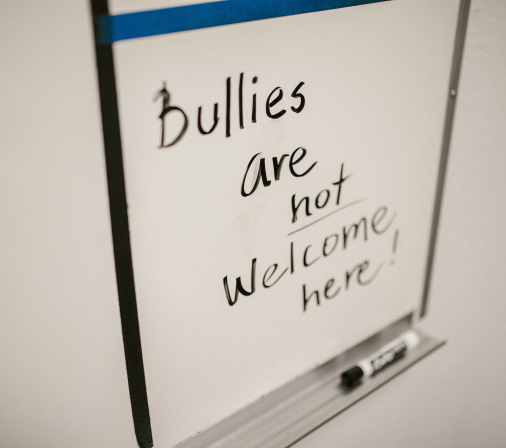 Bullies
are
not
Welcome
here!